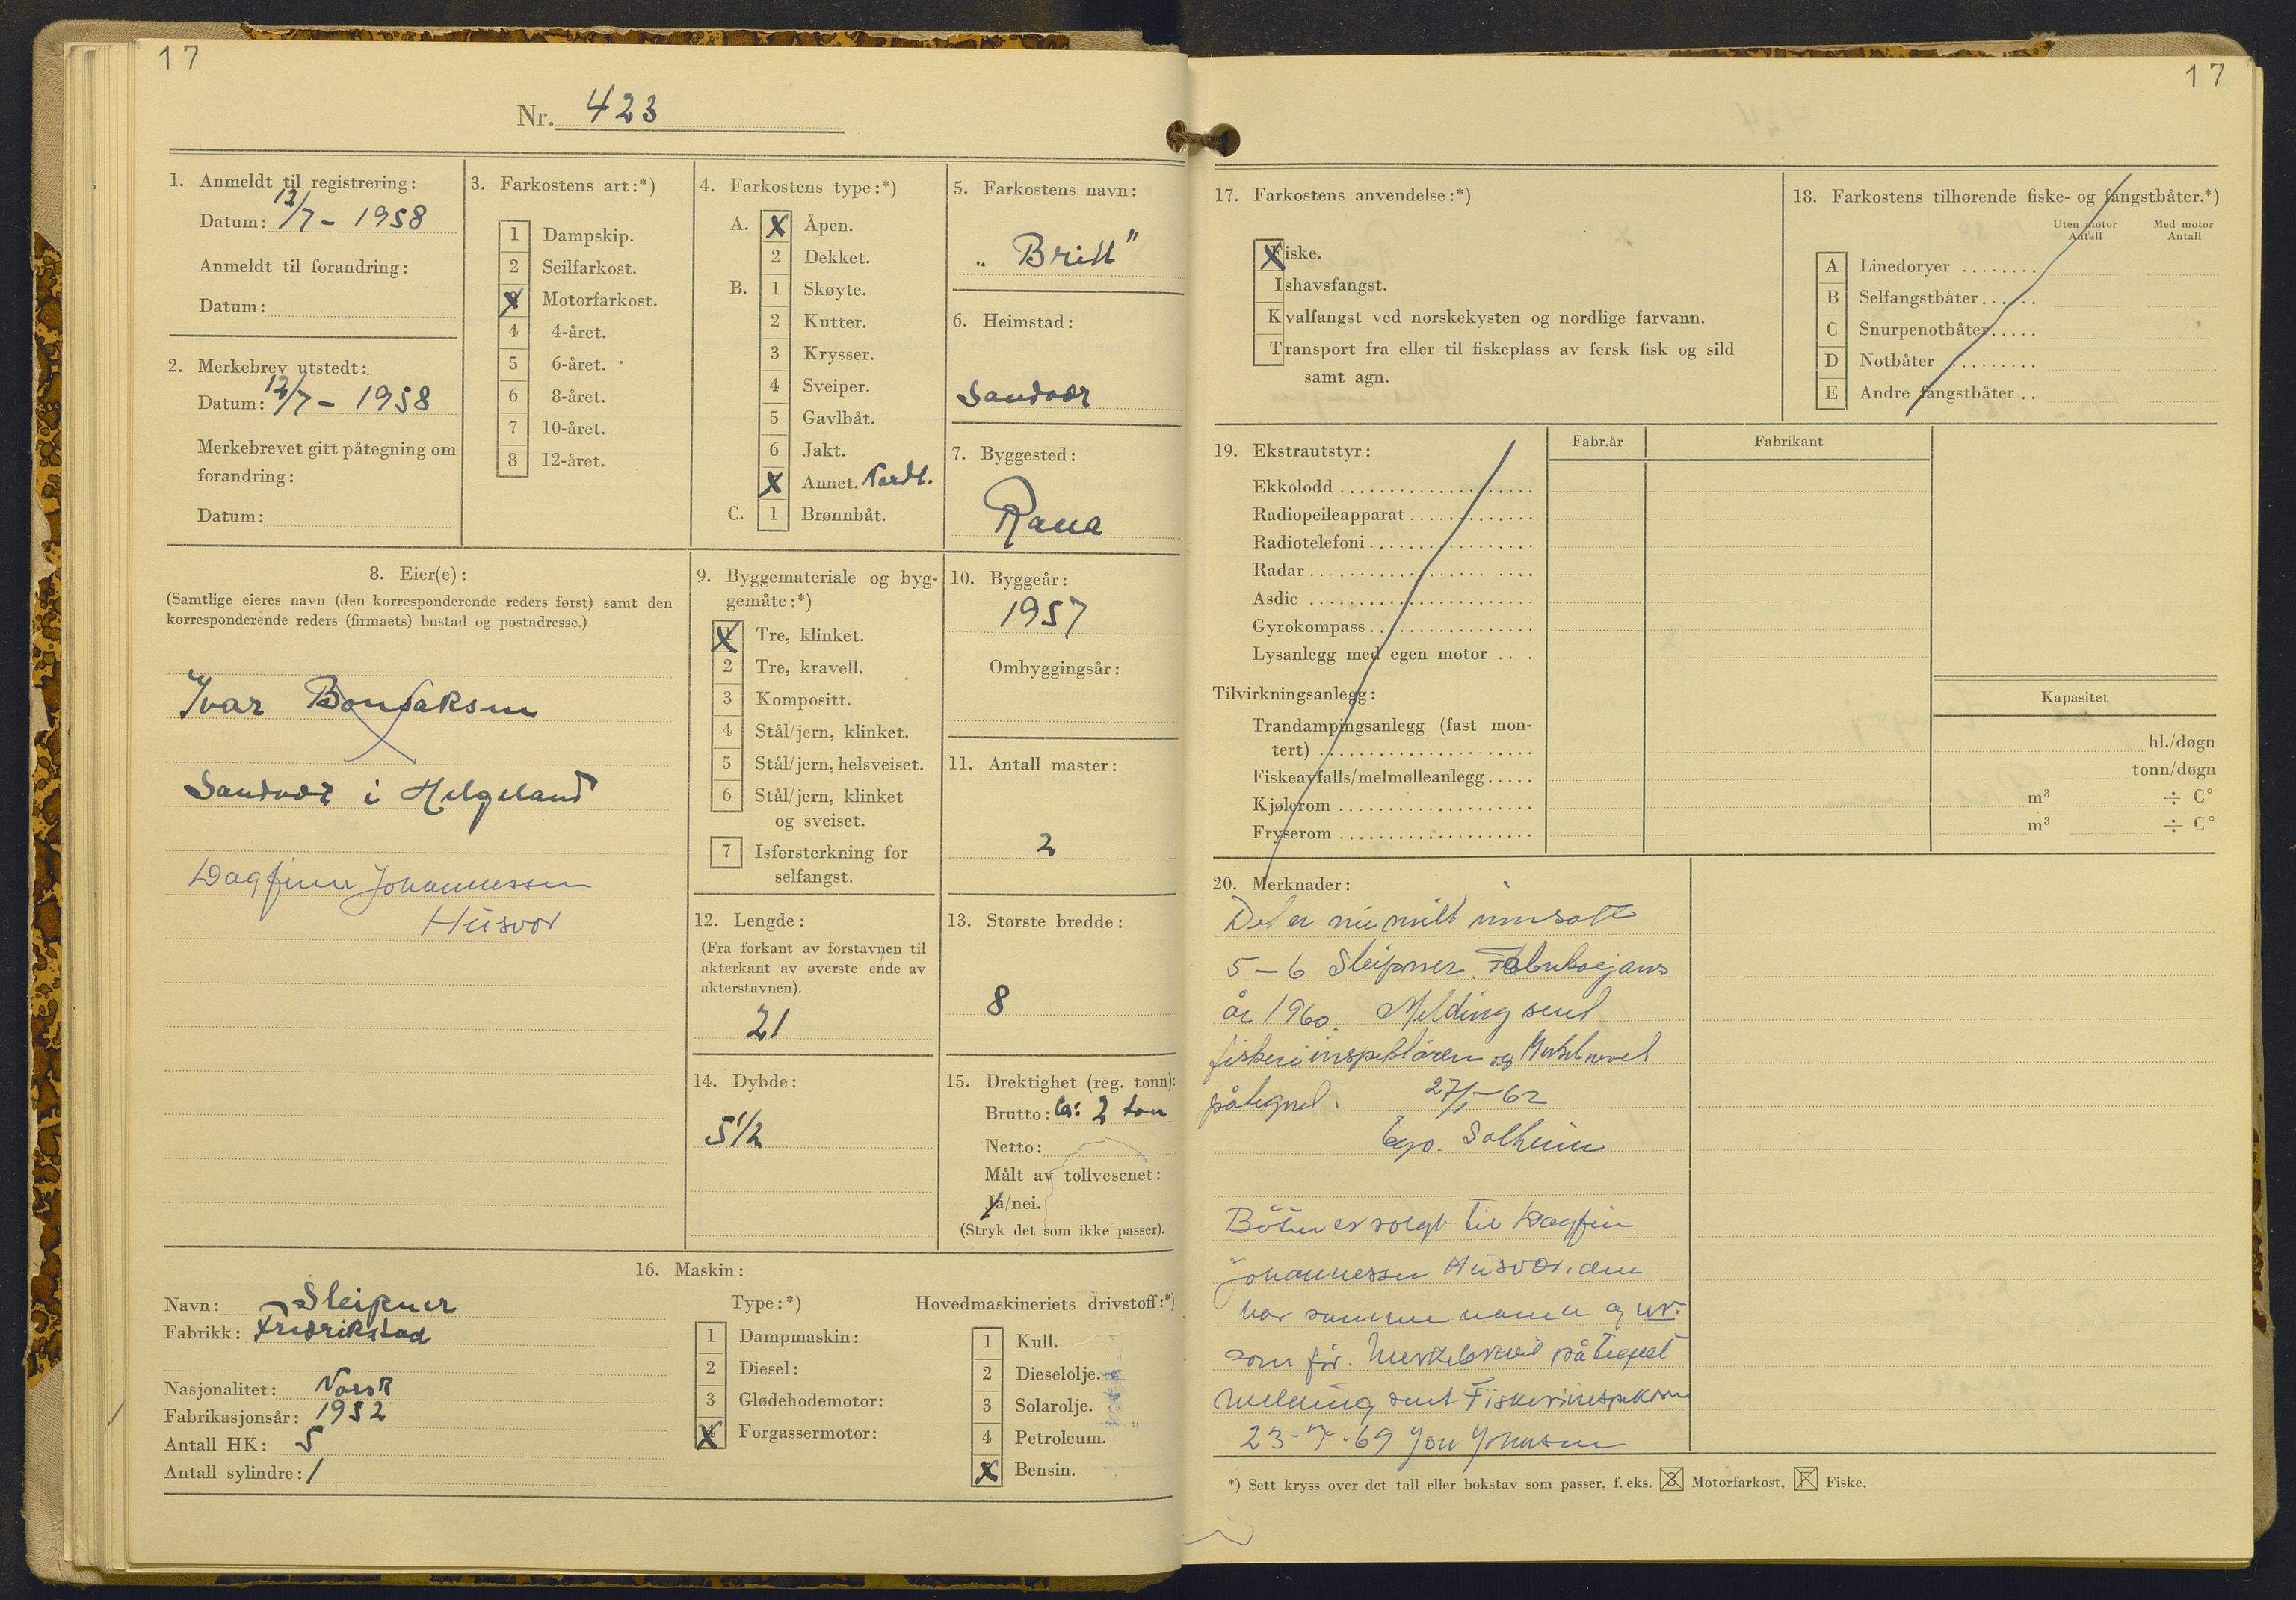 17
Nr. 423
1. Anmeldt til registrering:
Datum: 12/7 - 1958
Anmeldt til forandring:
Datum:
2. Merkebrev utstedt:
Datum: 12/7 - 1958
Merkebrevet gitt påtegning om
forandring:
Datum:
3. Farkostens art:*)
1 Dampskip.
2 Seilfarkost.
X Motorfarkost.
4 4-året.
5 6-året.
6 8-året.
7 10-året.
8 12-året.
4. Farkostens type:*)
A. X Åpen.
2 Dekket.
B. 1 Skøyte.
2 Kutter.
3 Krysser.
4 Sveiper.
5 Gavlbåt.
6 Jakt.
X Annet. Nordl.
C. 1 Brønnbåt.
5. Farkostens navn:
„Britt"
6. Heimstad:
Sandvær
7. Byggested:
Rana
8. Eier(e):
(Samtlige eieres navn (den korresponderende reders først) samt den
korresponderende reders (firmaets) bustad og postadresse.)
Ivar Bonsaksen
Sandvær i Helgeland
Dagfinn Johannessen
Husvær
9. Byggemateriale og byg-
gemåte:*)
X Tre, klinket.
2 Tre, kravell.
3 Kompositt.
4 Stål/jern, klinket.
5 Stål/jern, helsveiset.
6 Stål/jern, klinket
og sveiset.
7 Isforsterkning for
selfangst.
10. Byggeår:
1957
Ombyggingsår:
11. Antall master:
2
12. Lengde:
(Fra forkant av forstavnen til
akterkant av øverste ende av
akterstavnen).
21
13. Største bredde:
8
14. Dybde:
5 1/2
15. Drektighet (reg. tonn):
Brutto: ca: 2 ton
Netto:
Målt av tollvesenet:
Ja/nei.
(Stryk det som ikke passer).
16. Maskin:
Navn: Sleipner
Fabrikk: Fredrikstad
Nasjonalitet: Norsk
Fabrikasjonsår: 1952
Antall HK: 5
Antall sylindre: 1
Type:*)
1 Dampmaskin:
2 Diesel:
3 Glødehodemotor:
X Forgassermotor:
Hovedmaskineriets drivstoff:*)
1 Kull.
2 Dieselolje.
3 Solarolje.
4 Petroleum.
X Bensin.
17
17. Farkostens anvendelse:*)
Fiske.
Ishavsfangst.
Kvalfangst ved norskekysten og nordlige farvann.
Transport fra eller til fiskeplass av fersk fisk og sild
samt agn.
18. Farkostens tilhørende fiske- og fangstbåter.*)
Uten motor Antall
Med motor Antall
A Linedoryer
B Selfangstbåter
C Snurpenotbåter
D Notbåter
E Andre fangstbåter
19. Ekstrautstyr:
Fabr.år
Fabrikant
Ekkolodd
Radiopeileapparat
Radiotelefoni
Radar
Asdic
Gyrokompass
Lysanlegg med egen motor
Tilvirkningsanlegg:
Kapasitet
Trandampingsanlegg (fast mon-
tert)
hl./døgn
Fiskeavfalls/melmølleanlegg
tonn/døgn
Kjølerom
m³ ÷ C°
Fryserom
m³ ÷ C°
20. Merknader:
Det er nu innsatt
5-6 Sleipner.
år 1960. Melding sent
fiskeriinspektøren og Merkebrevet
påtegnet. 27/1-62
Solheim
Båten er solgt til Dagfin
Johannessen Husvær. den
har samme navn og nr.
som før. Merkebrevet påtegnet
melding sent Fiskeriinspektøren
23-7-69
*) Sett kryss over det tall eller bokstav som passer, f. eks. 3 Motorfarkost, F Fiske.